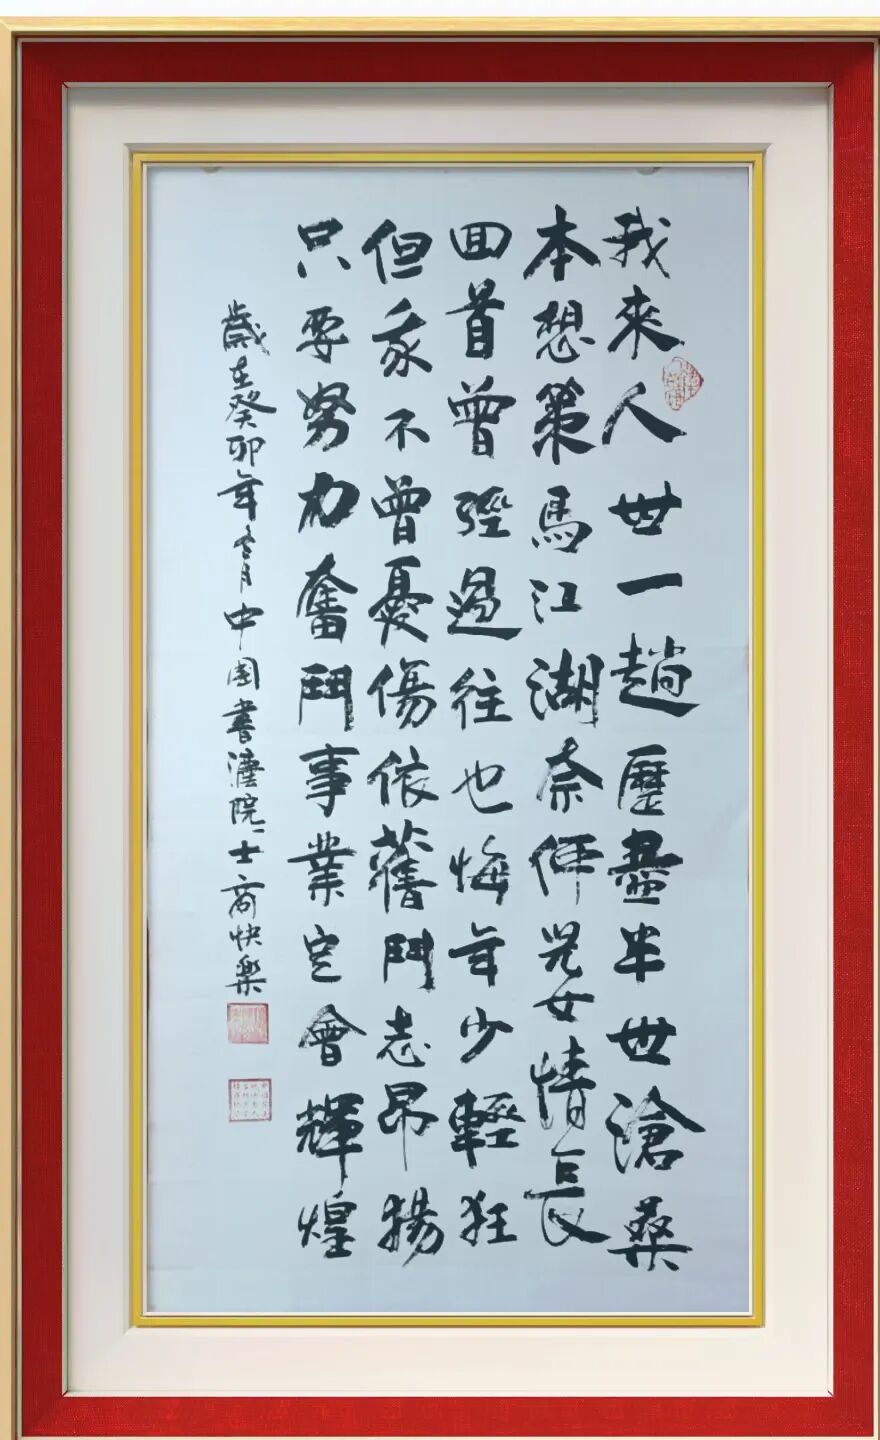 我來人世一趟歷盡半世滄桑
本想策馬江湖奈何兒女情長
回首曾經過往也悔年少輕狂
但我不曾憂傷依舊鬥志昂揚
只要努力奮鬥事業定會輝煌
歲在癸卯年冬月中國書法院士商快樂